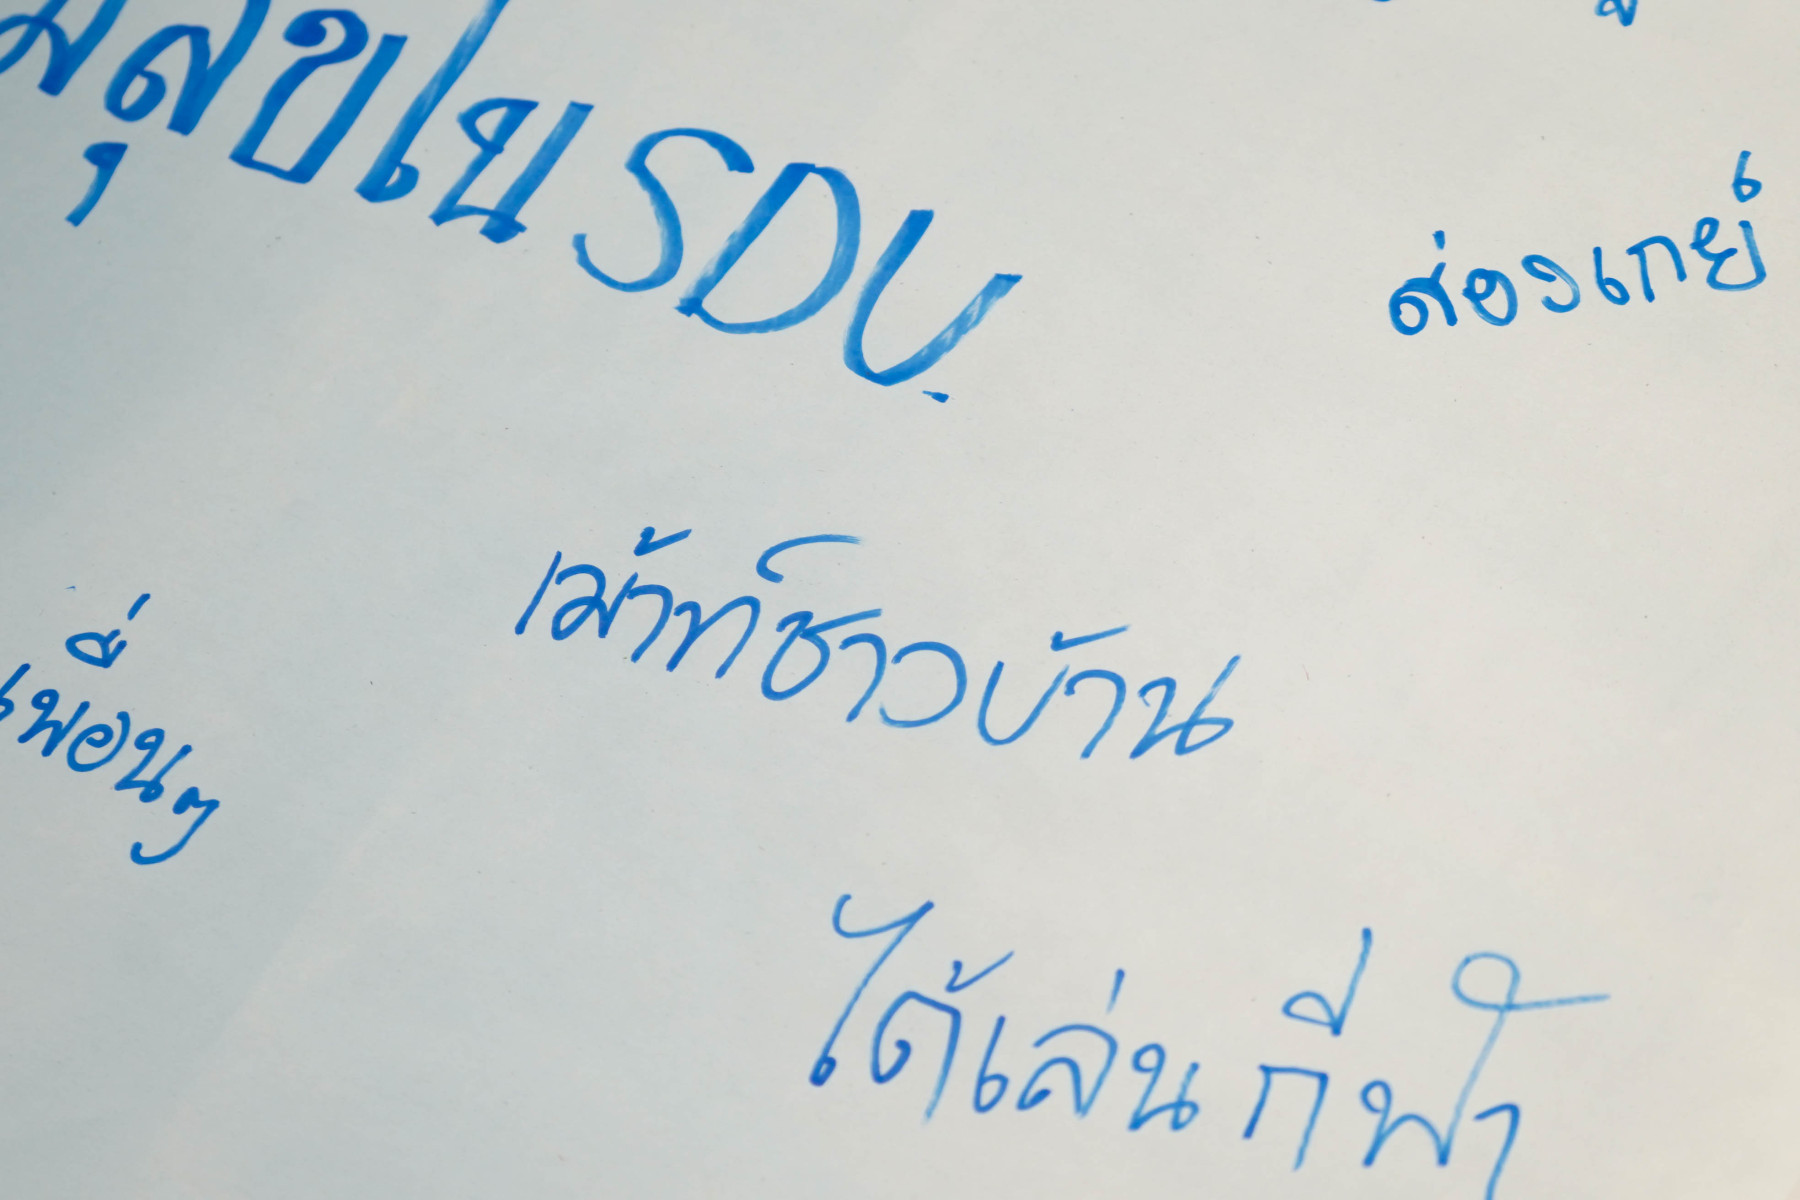 มสุขใน SDU.
ส่องเกย์
เม้าท์ชาวบ้าน
เพื่อนๆ
ได้เล่นกีฬา